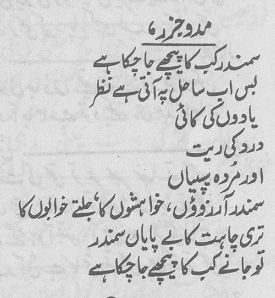 مدوجزر،
سمندر کب کا پیچھے جا چکا ہے
بس اب ساحل پہ آتی ہے نظر
یادوں کی کائی
درد کی ریت
اور مُردہ سیپیاں
سمندر آرزوؤں، خواہشوں کا، جلتے خوابوں کا
تری چاہت کا بے پایاں سمندر
تو جانے کب کا پیچھے جا چکا ہے